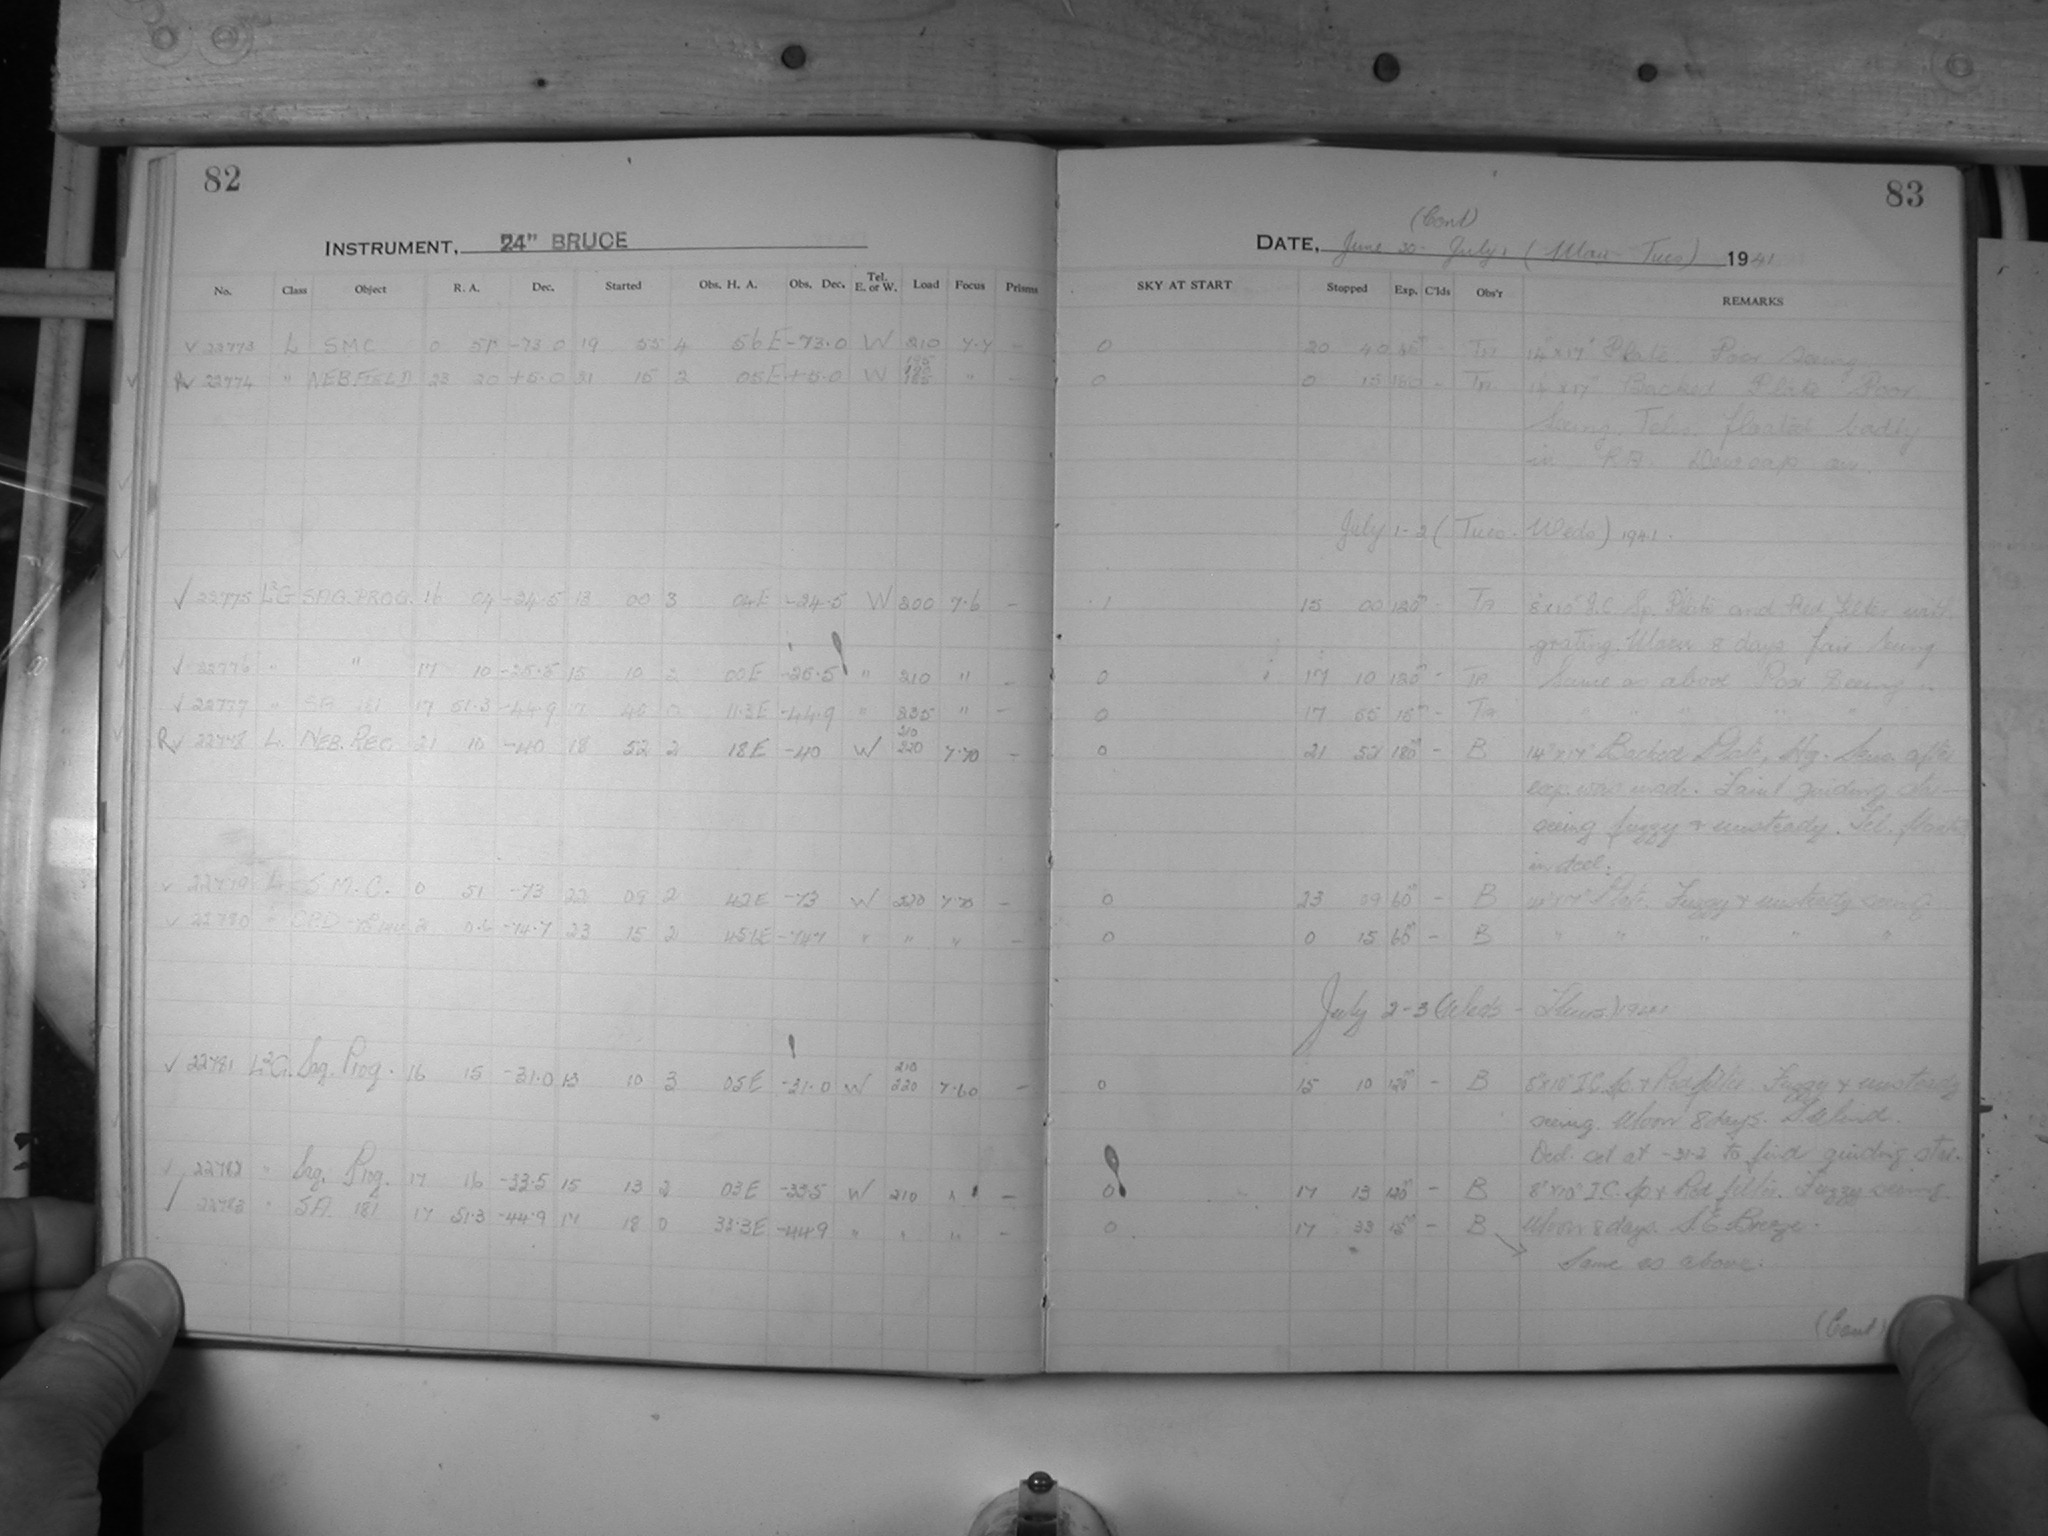 82
INSTRUMENT, 24" BRUCE
No. Class Object R. A. Dec. Started Obs. H. A. Obs. Dec. Tel. E. or W. Load Focus Prisms
√ 22773 L SMC 0 51 -73.0 19 55 4 56E -73.0 W 210 7.7 -
R√ 22774 " NEB. FIELD 23 20 +5.0 21 15 2 05E +5.0 W 185 " -
√ 22775 SAG. PROG. 16 04 -24.5 13 00 3 04E -24.5 W 200 7.6 -
√ 22776 " " 17 10 -25.5 15 10 2 00E -25.5 " 210 " -
√ 22777 " SA 181 17 51.3 -44.9 17 40 0 11.3E -44.9 " 235 " -
R√ 22778 L. NEB. REG 21 10 -40 18 52 2 18E -40 W 210 220 7.70 -
√ 22779 L S.M.C. 0 51 -73 22 09 2 42E -73 W 220 7.70 -
√ 22780 " CPD -74.7 23 15 2 45E -74.7 " " " -
√ 22781 Sag. Prog. 16 15 -31.0 13 10 3 05E -31.0 W 210 220 7.60 -
√ 22782 " Sag. Prog. 17 16 -33.5 15 13 2 03E -33.5 W 210 " -
√ 22783 " SA 181 17 51.3 -44.9 17 18 0 33.3E -44.9 " " " -
83
(Cont)
DATE, June 30 - July 1 (Mon - Tues) 1941
SKY AT START Stopped Exp. C'lds Obs'r REMARKS
0 20 40 45m - 14"x17" Plate. Poor Seeing
0 0 15 180 - 14"x17" Backed Plate Poor
Seeing. Tel. floated badly
in RA. Dewcap on.
July 1-2 (Tues - Weds) 1941.
1 15 00 120m - 8x10" I.C. Sp. Plate and Red filter with
grating. Moon 8 days fair seeing
0 17 10 120m - Same as above Poor Seeing
0 17 55 15m - " " " " "
0 21 52 180m - B 14"x17" Backed Plate, Hg. Sens. after
exp. was made. Faint guiding star -
seeing fuzzy & unsteady. Tel. floated
in decl.
0 23 09 60m - B 14"x17" Plate. Fuzzy & unsteady seeing
0 0 15 60m - B " " " " "
July 2-3 (Weds - Thurs) 1941
0 15 10 120m - B 8"x10" I.C. Sp. & Red filter. Fuzzy & unsteady
seeing. Moon 8 days. S. Wind.
Decl. set at -31.2 to find guiding star.
0 17 13 120m - B 8"x10" I.C. Sp & Red filter. Fuzzy seeing
0 17 33 15m - B Moon 8 days. S.E. Breeze.
Same as above.
(Cont)